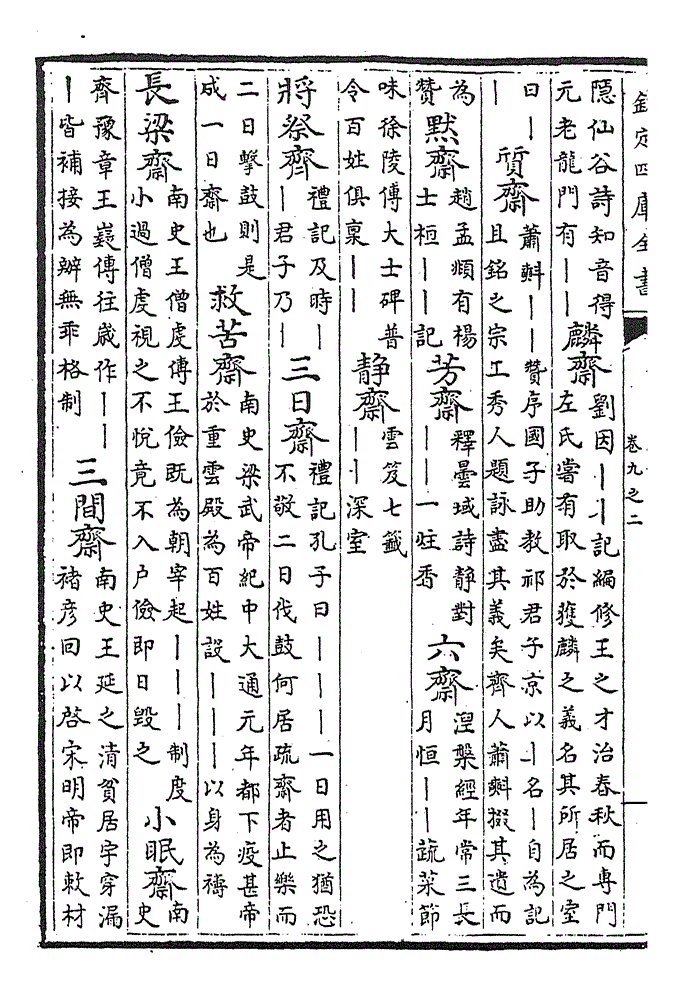 欽定四庫全書 卷九之二
隱仙谷詩知音得
元老龍門有丨丨
麟齋
劉因丨丨記編修王之才治春秋而專門
左氏嘗有取於獲麟之義名其所居之室
曰丨
丨
質齋
蕭㪺丨丨贊序國子助教祁君子京以丨名丨自為記
且銘之宗工秀人題詠盡其義矣齊人蕭㪺掇其遺而
為
贊
默齋
趙孟頫有楊
士桓丨丨記
芳齋
釋曇域詩静對
丨丨一炷香
六齋
涅槃經年常三長
月恒丨丨蔬菜節
味徐陵傅大士碑普
令百姓俱稟丨丨
静齋
雲笈七籤
丨丨深室
將祭齊
禮記及時丨
丨君子乃丨
三日齋
禮記孔子曰丨丨丨一日用之猶恐
不敬二日伐鼓何居疏齋者止樂而
二日擊鼓則是
成一日齋也
救苦齋
南史梁武帝紀中大通元年都下疫甚帝
於重雲殿為百姓設丨丨丨以身為禱
長梁齋
南史王僧虔傳王儉既為朝宰起丨丨丨制度
小過僧虔視之不悅竟不入户儉即日毁之
小眠齋
南
史
齊豫章王嶷傳往歲作丨丨
丨皆補接為辦無乖格制
三間齋
南史王延之清貧居宇穿漏
褚彦回以啓宋明帝即敕材